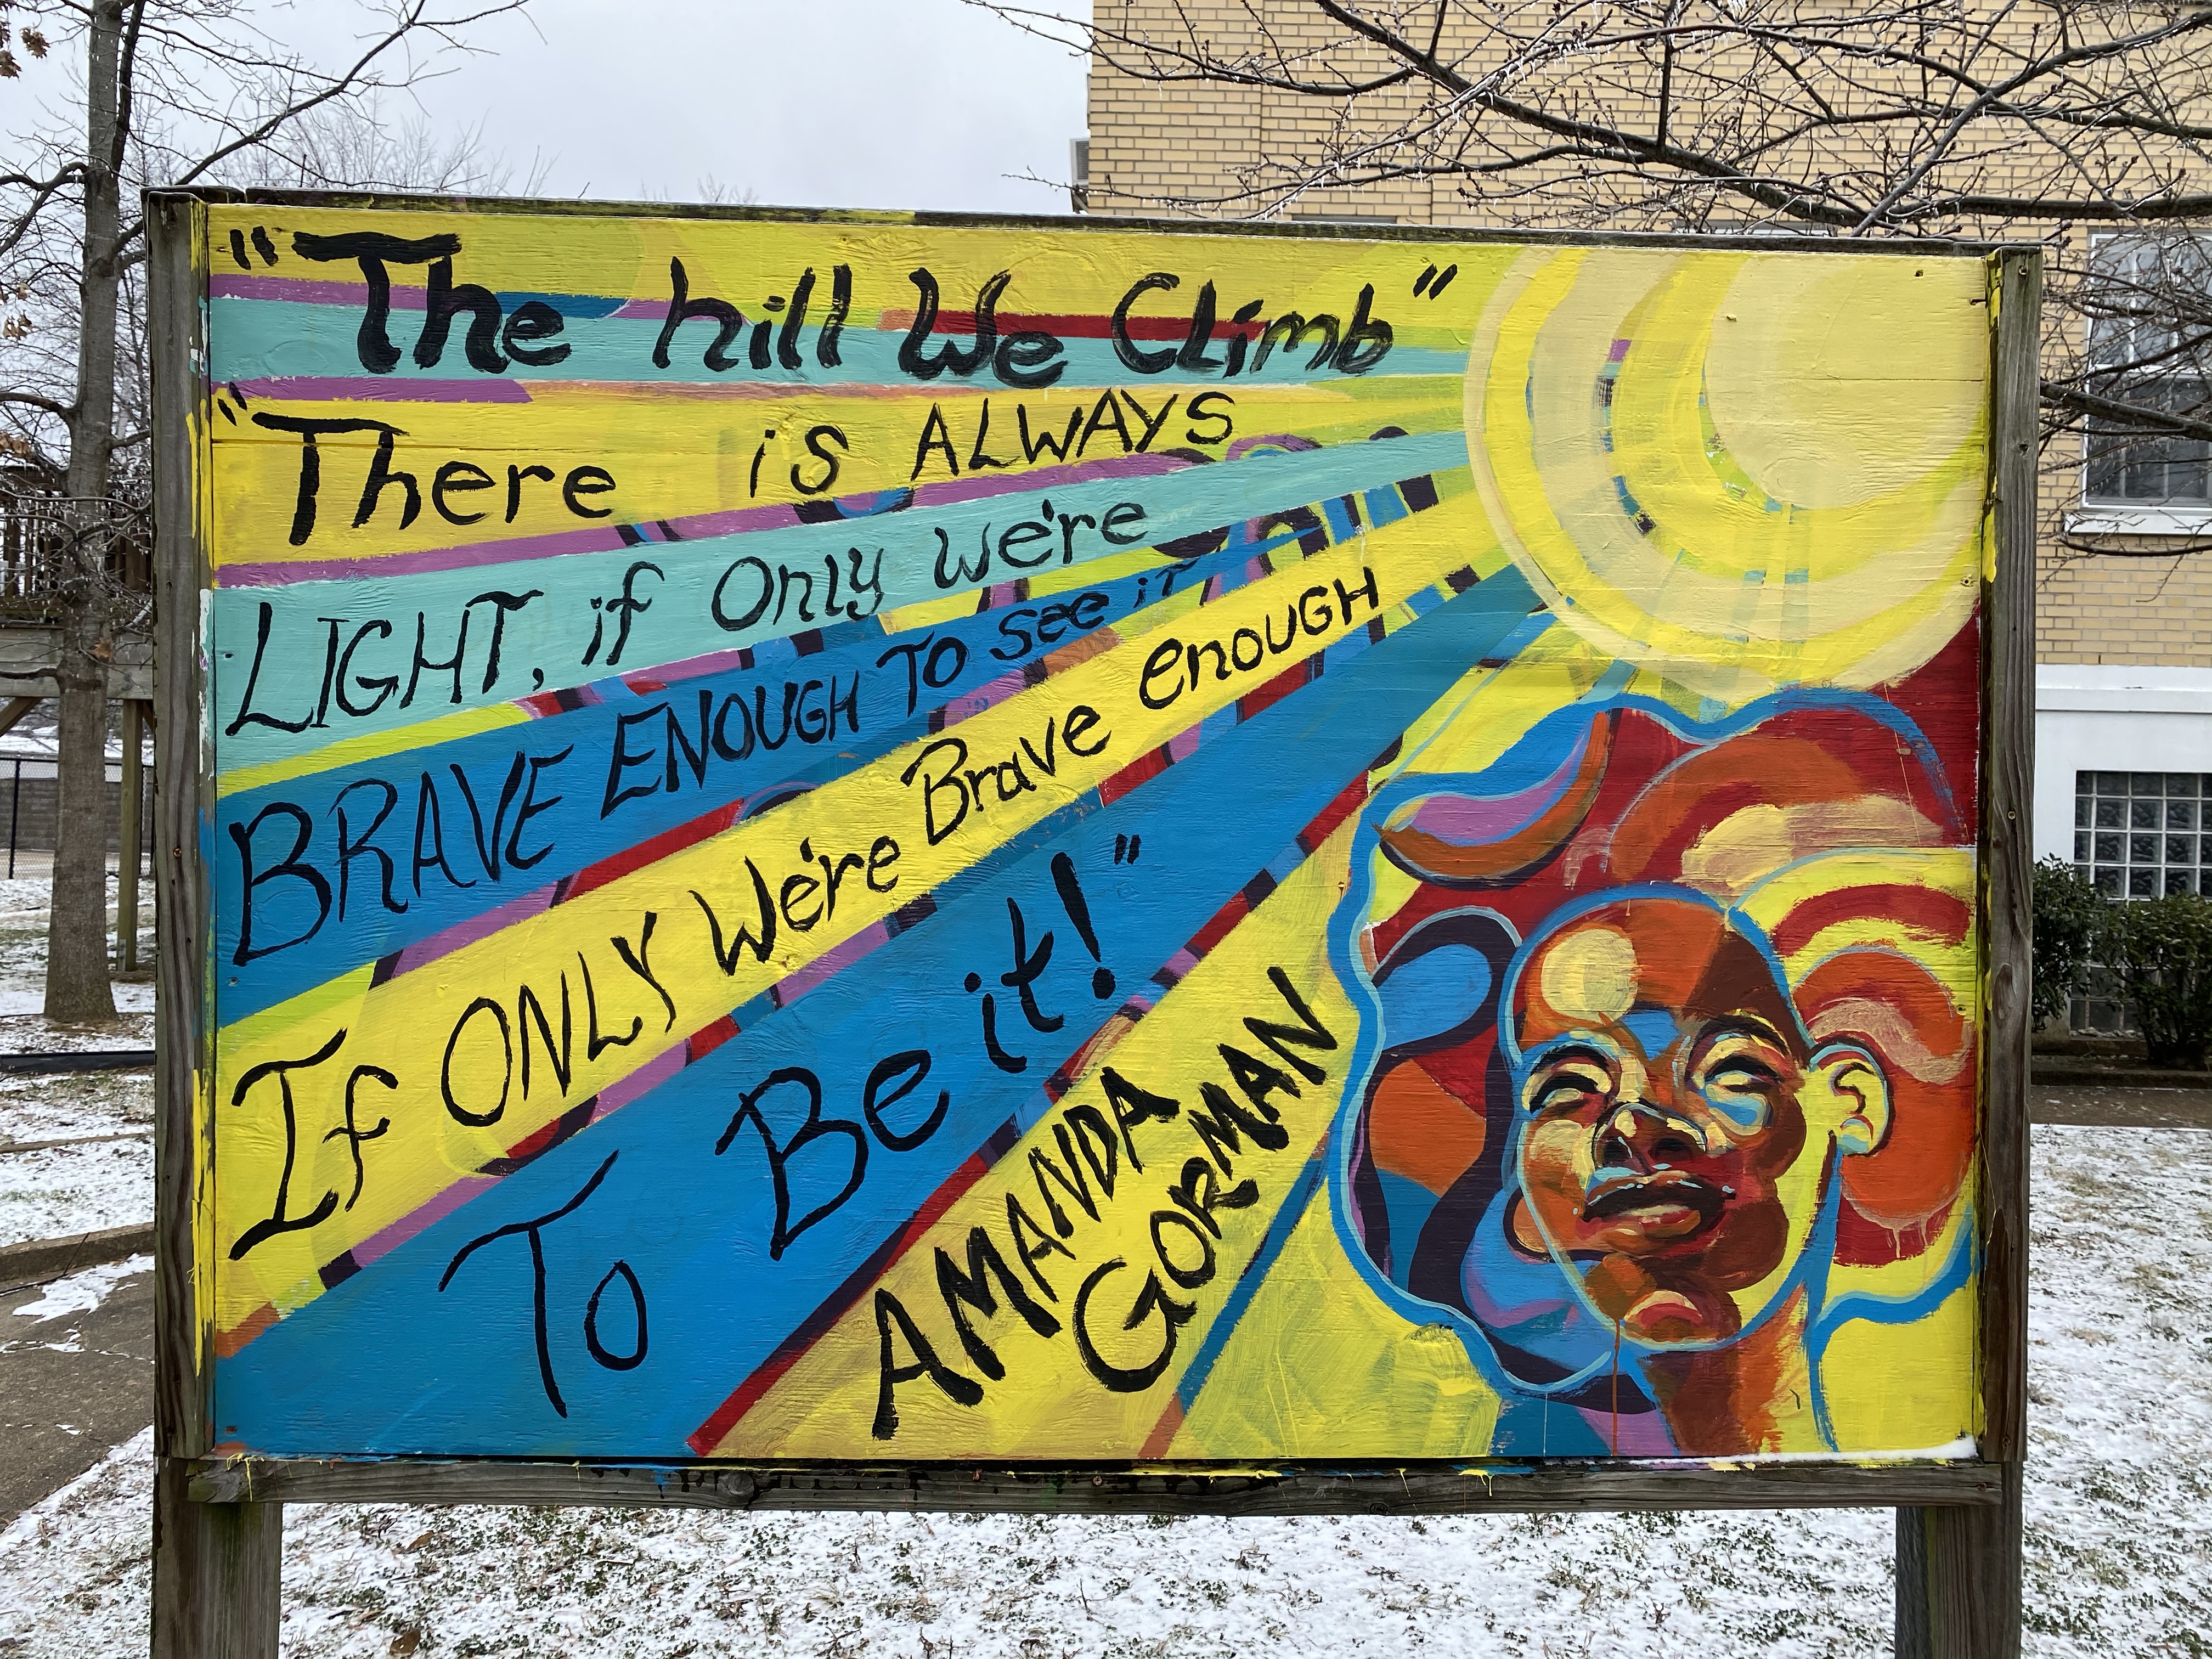 "The hill We Climb"
"There is ALWAYS
LIGHT, if Only we're
BRAVE ENOUGH TO see it
If ONLY We're Brave enough
To Be it!"
AMANDA
GORMAN